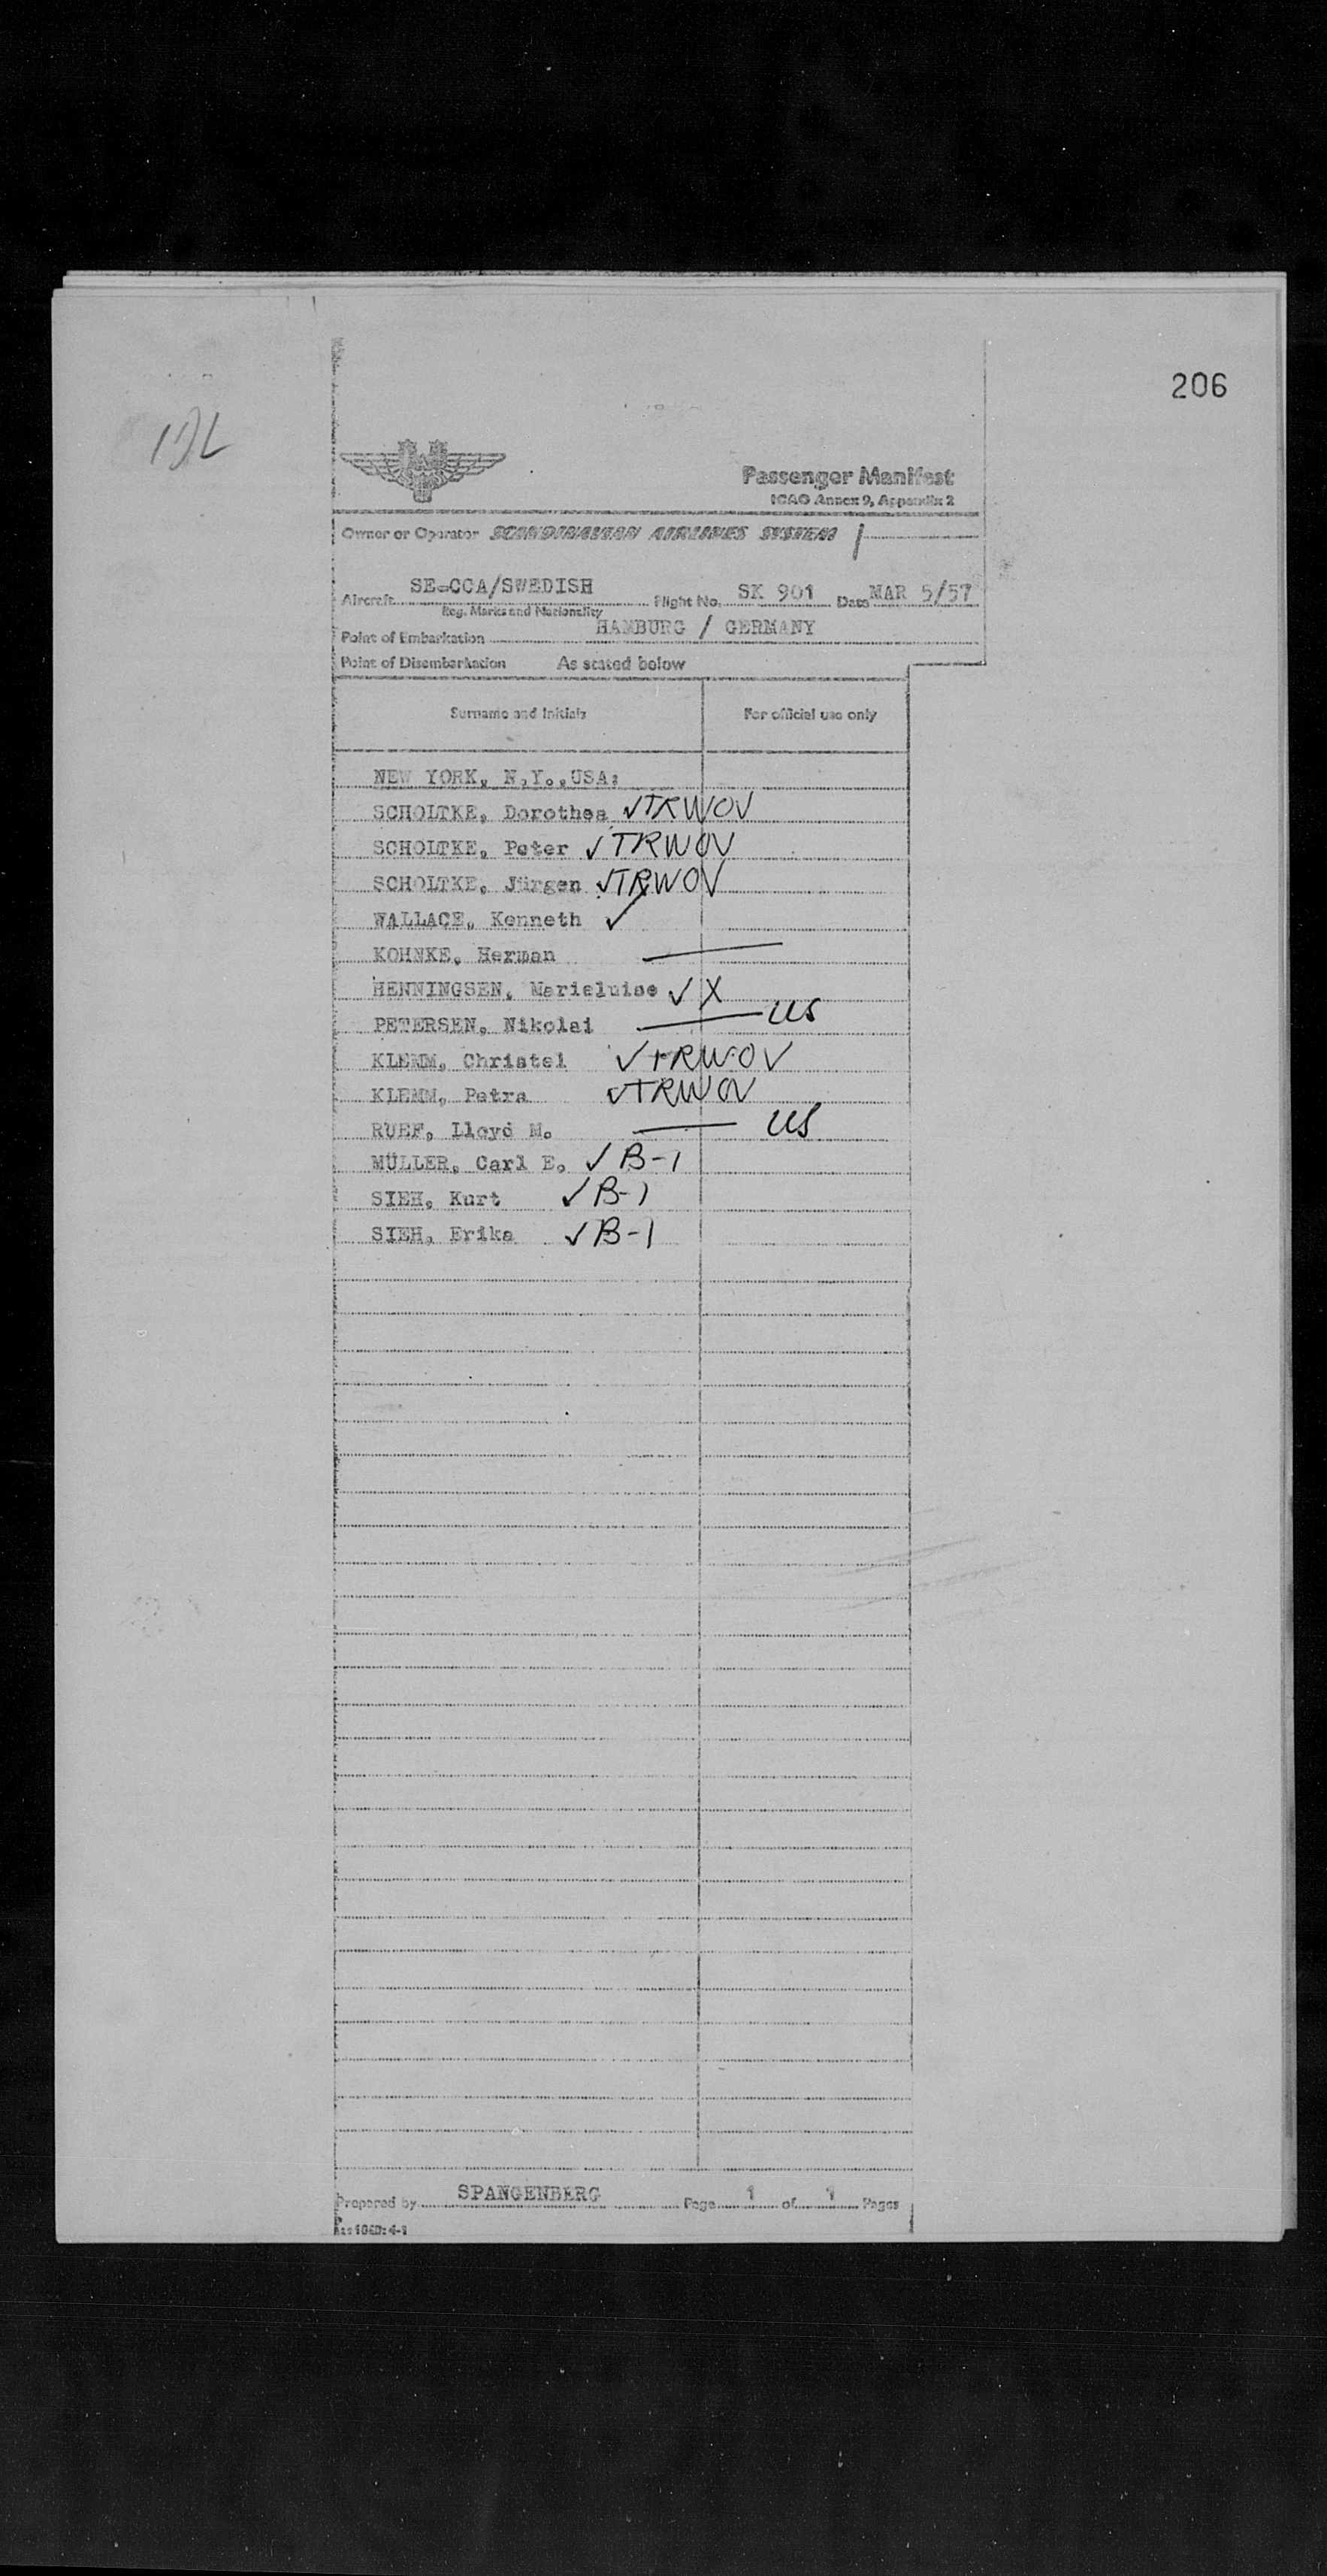 206
Passenger Manifest
ICAO Annex 9, Appendix 2
Owner or Operator SCANDINAVIAN AIRLINES SYSTEM
Aircraft SE-CCA/SWEDISH Flight No. SK 901 Date MAR 5/57
Reg. Marks and Nationality
Point of Embarkation HAMBURG / GERMANY
Point of Disembarkation As stated below
Surname and Initials For official use only
NEW YORK, N.Y.,USA:
SCHOLTKE, Dorothea ✓TRWOV
SCHOLTKE, Peter ✓TRWOV
SCHOLTKE, Jürgen ✓TRWOV
WALLACE, Kenneth ✓
KOHNKE, Herman —
HENNINGSEN, Marieluise ✓ X
PETERSEN, Nikolai — US
KLEMM, Christel ✓TRWOV
KLEMM, Petra ✓TRWOV
RUEF, Lloyd M. — US
MÜLLER, Carl E. ✓ B-1
SIEH, Kurt ✓ B-1
SIEH, Erika ✓ B-1
Prepared by SPANGENBERG Page 1 of 1 Pages